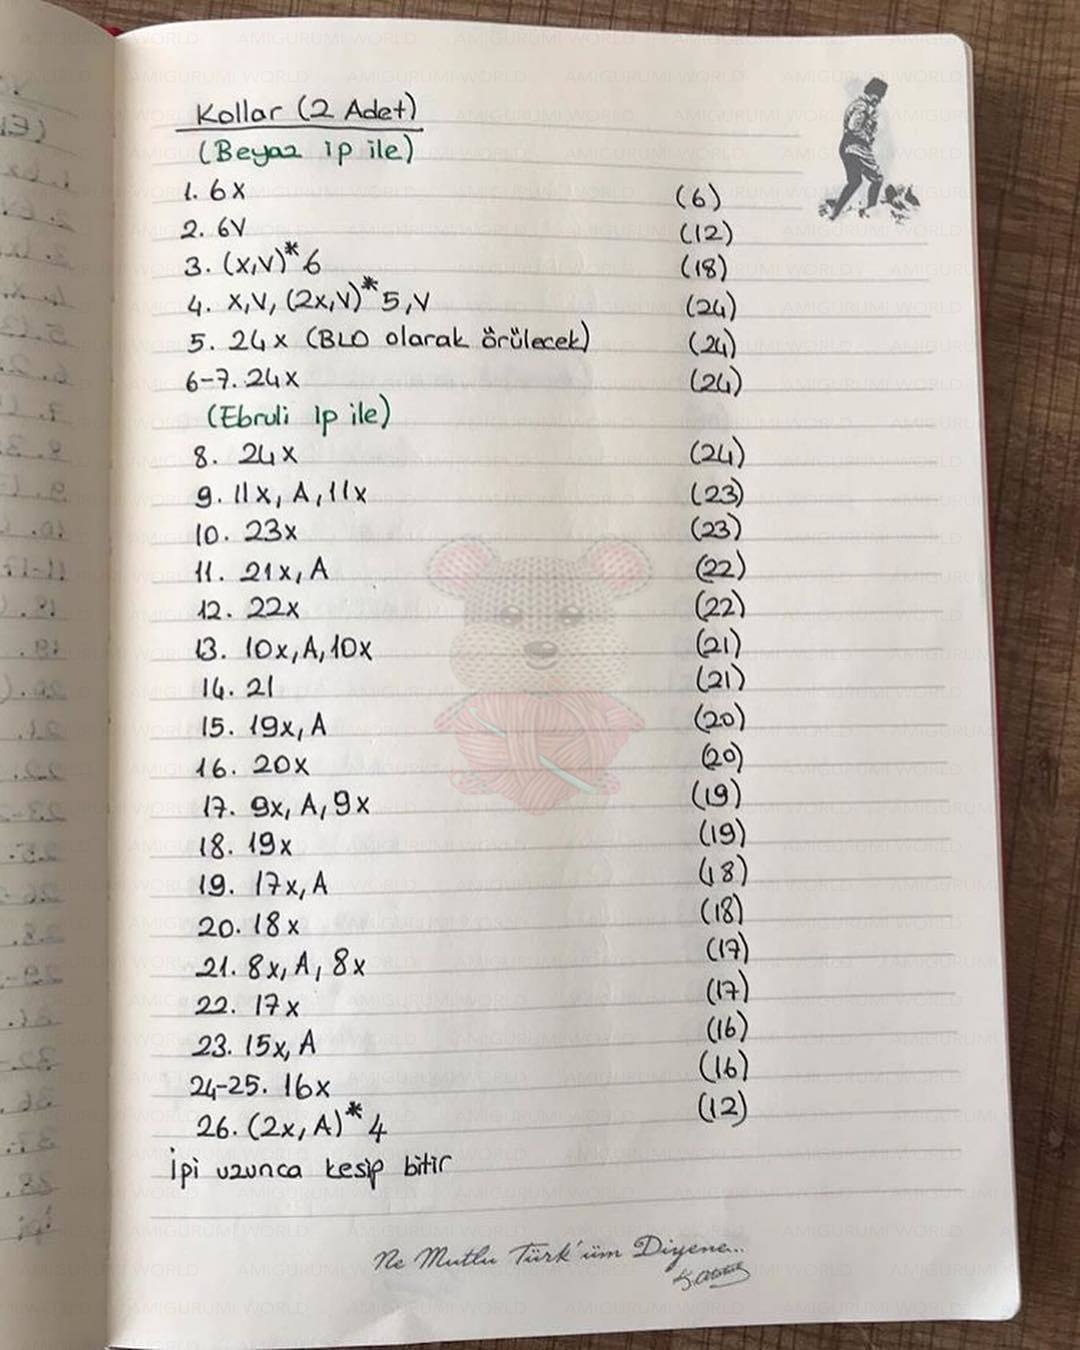 Kollar (2 Adet)
(Beyaz ip ile)
1. 6x (6)
2. 6V (12)
3. (x,V)*6 (18)
4. x,V, (2x,V)*5,V (24)
5. 24x (BLO olarak örülecek) (24)
6-7. 24x (24)
(Ebruli ip ile)
8. 24x (24)
9. 11x, A, 11x (23)
10. 23x (23)
11. 21x, A (22)
12. 22x (22)
13. 10x, A, 10x (21)
14. 21 (21)
15. 19x, A (20)
16. 20x (20)
17. 9x, A, 9x (19)
18. 19x (19)
19. 17x, A (18)
20. 18x (18)
21. 8x, A, 8x (17)
22. 17x (17)
23. 15x, A (16)
24-25. 16x (16)
26. (2x, A)*4 (12)
İpi uzunca kesip bitir
Ne Mutlu Türk'üm Diyene...
K. Atatürk
AMIGURUMI WORLD